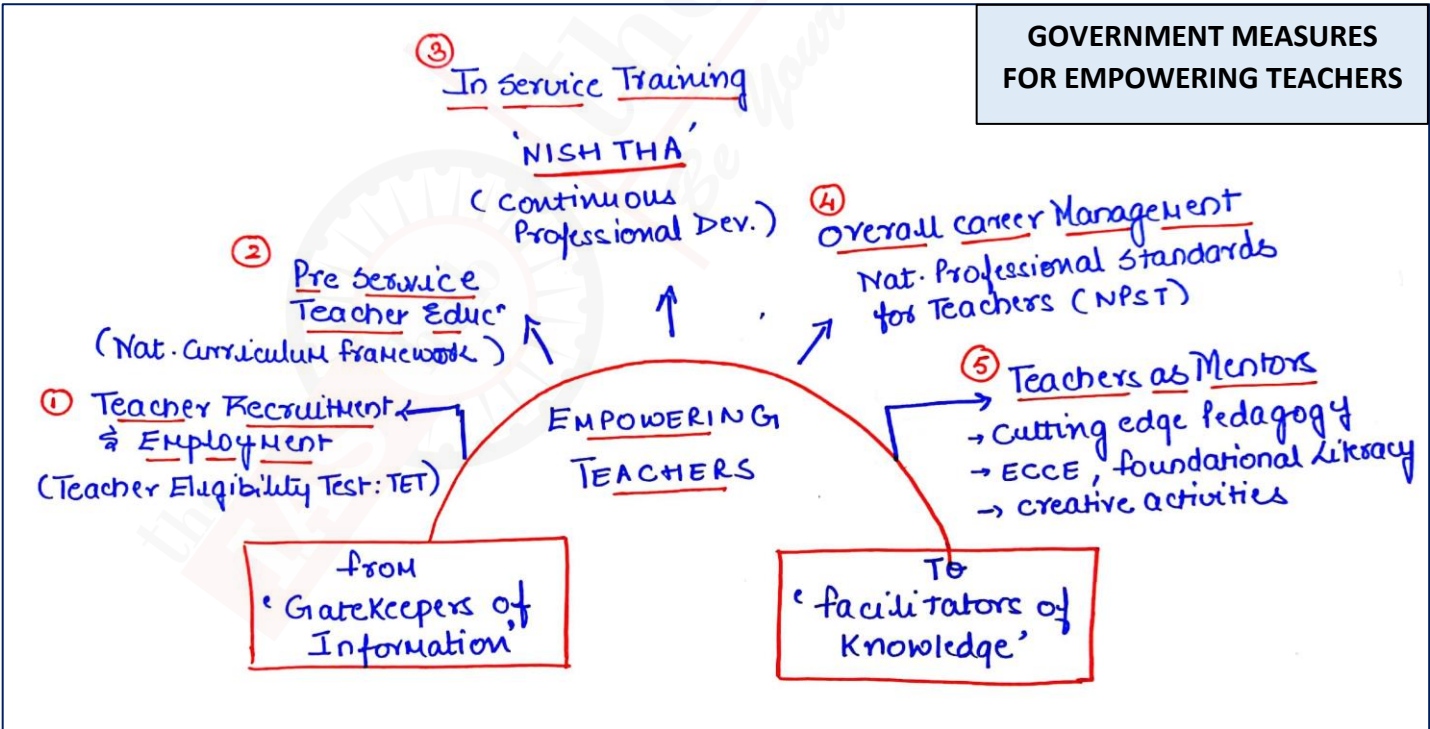 GOVERNMENT MEASURES
FOR EMPOWERING TEACHERS
③
In Service Training
'NISHTHA'
(Continuous
Professional Dev.)
②
Pre Service
Teacher Educⁿ
(Nat. Curriculum framework)
④
Overall career Management
Nat. Professional Standards
for Teachers (NPST)
① Teacher Recruitment
& Employment
(Teacher Eligibility Test: TET)
EMPOWERING
TEACHERS
⑤ Teachers as Mentors
→ Cutting edge Pedagogy
→ ECCE, foundational Literacy
→ creative activities
from
'Gatekeepers of
Information'
To
'facilitators of
Knowledge'